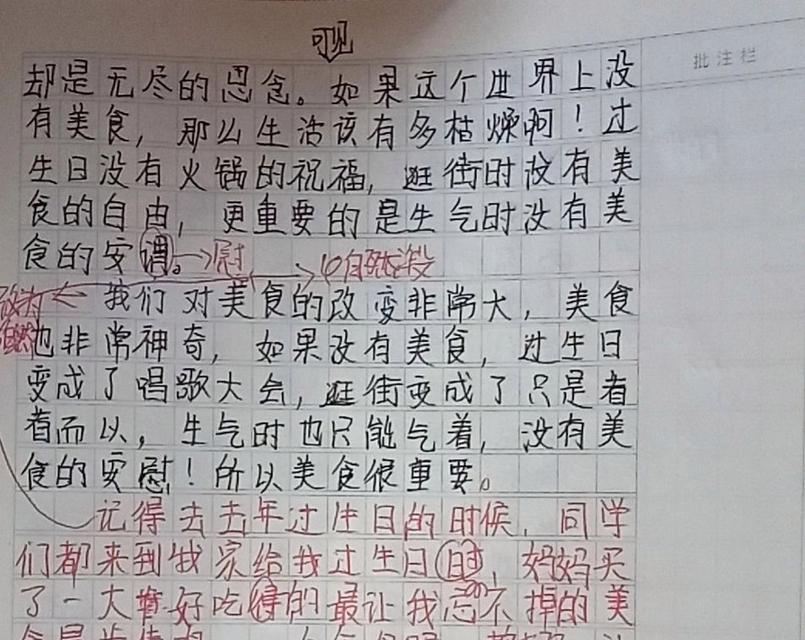 可见
批注栏
却是无尽的思念。如果这个世界上没
有美食，那么生活该有多枯燥啊！过
生日没有火锅的祝福，逛街时没有美
食的自由，更重要的是生气时没有美
食的安调。→慰
自然段
改为
自然
我们对美食的改变非常大，美食
也非常神奇，如果没有美食，过生日
变成了唱歌大会，逛街变成了只是看
看而以，生气时也只能气着，没有美
食的安慰！所以美食很重要。
记得去去年过生日的时候，同学
们都来到我家给我过生日时，妈妈买
了一大堆好吃得的最让我忘不掉的美